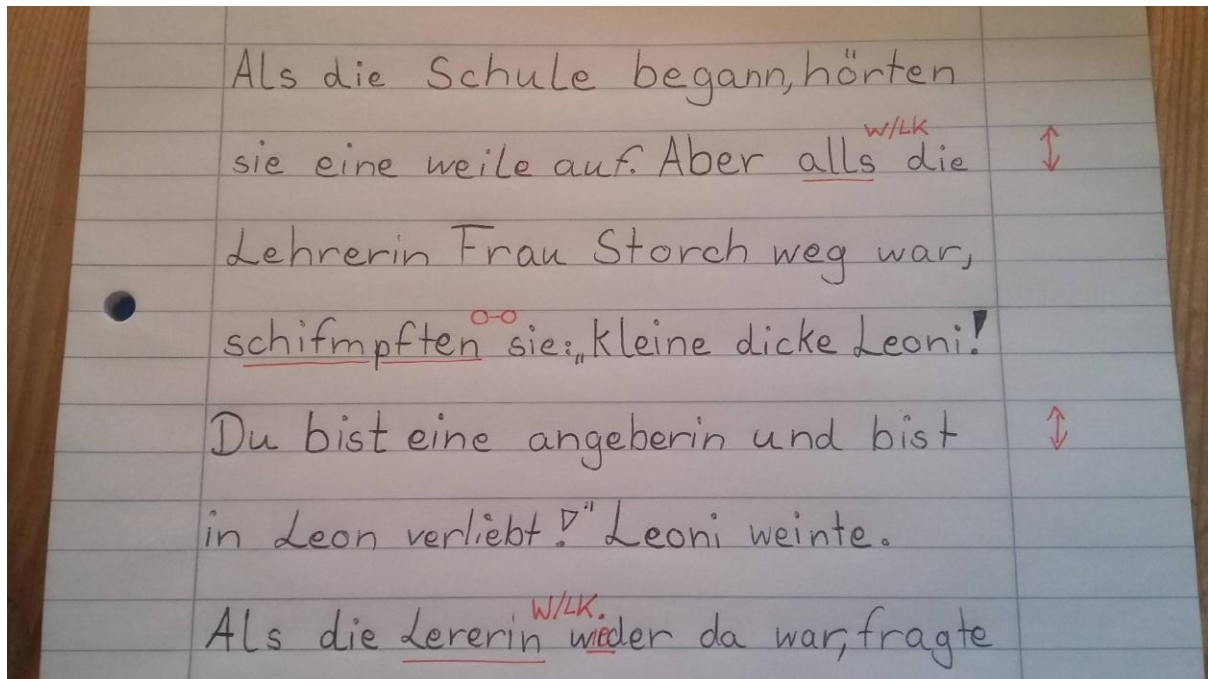 Als die Schule begann, hörten
W/LK
sie eine weile auf. Aber alls die
Lehrerin Frau Storch weg war,
schifmpften sie: „kleine dicke Leoni!
Du bist eine angeberin und bist
in Leon verliebt!" Leoni weinte.
W/LK.
Als die Lererin wieder da war, fragte